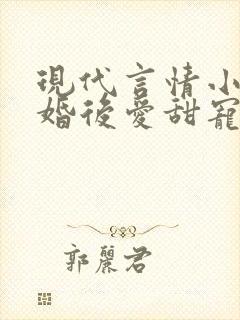 現代言情小
婚後愛甜寵
郭麗君